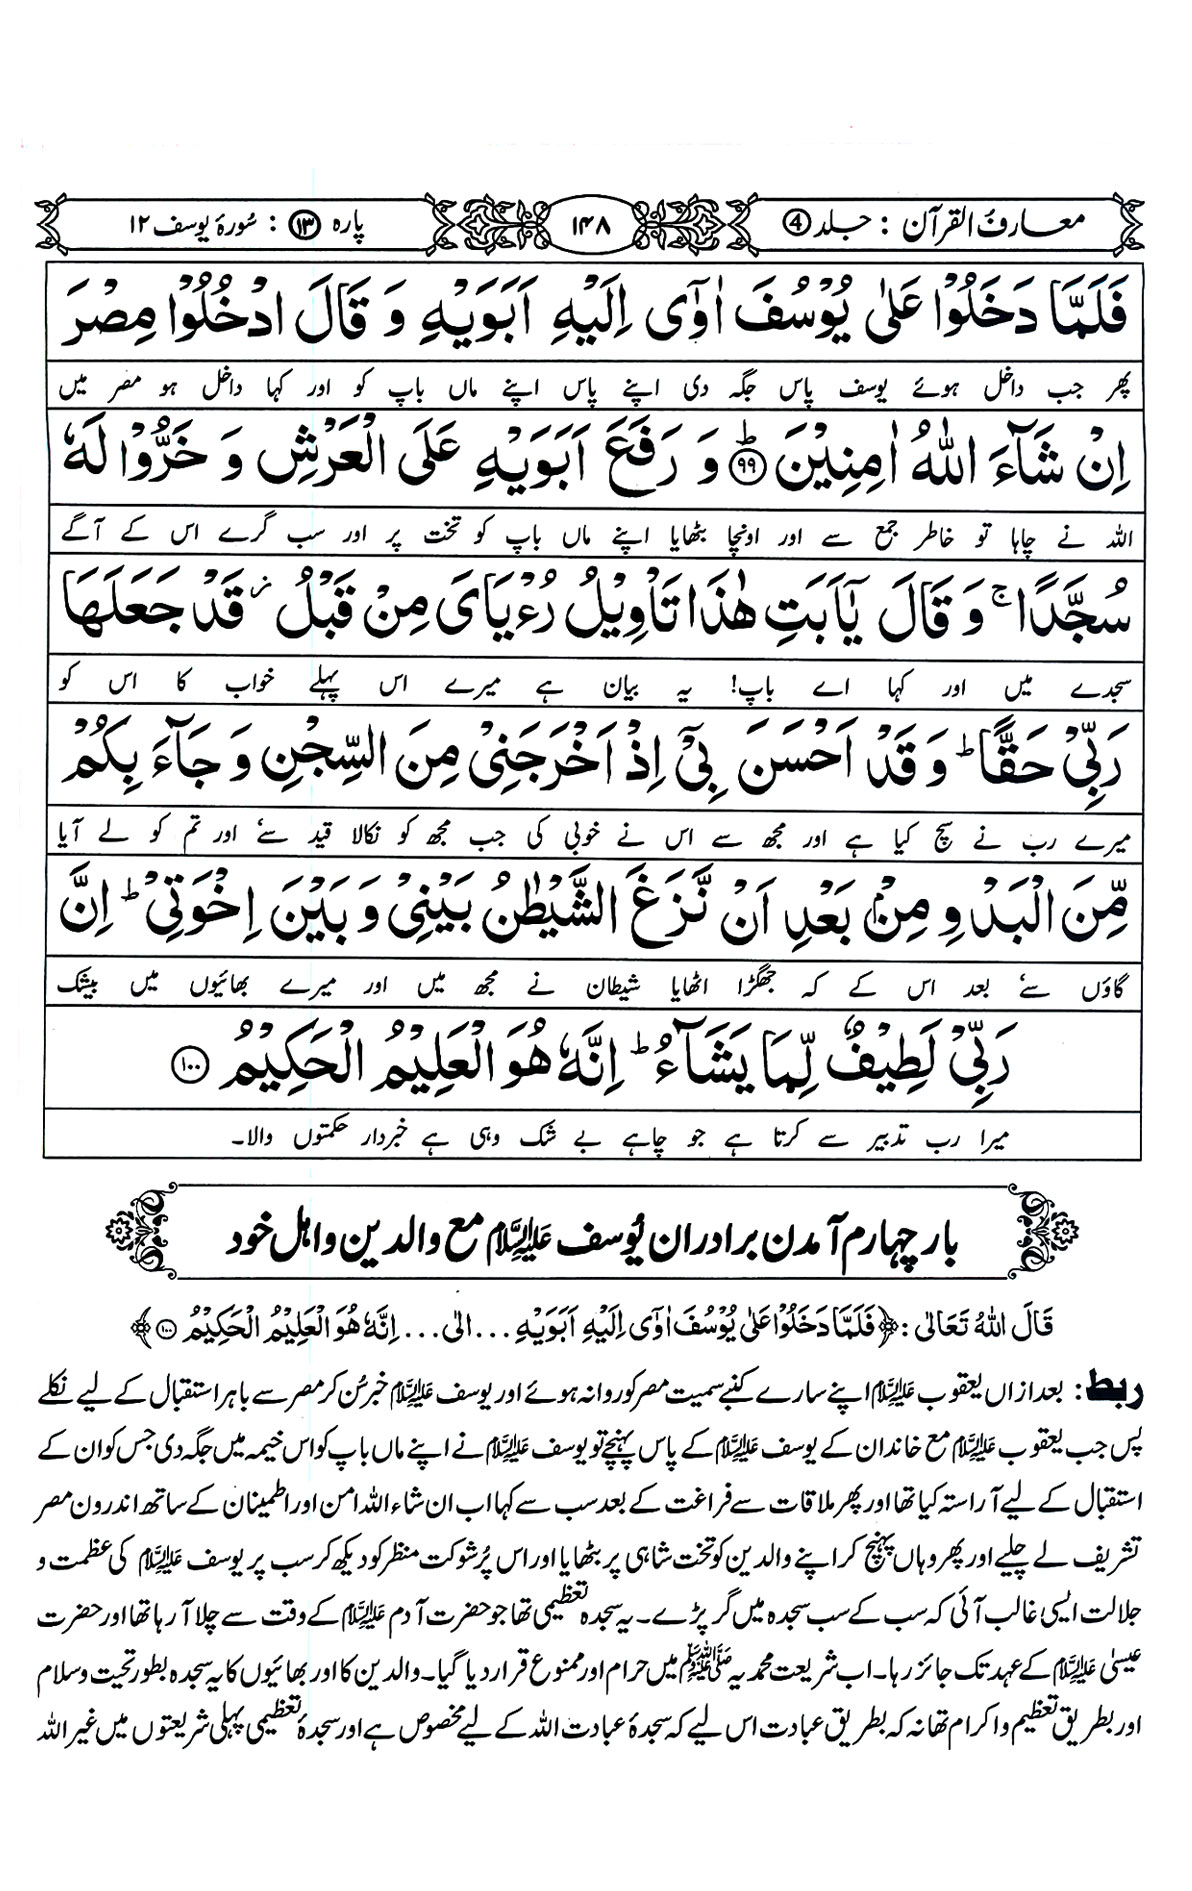 معارف القرآن : جلد ④
۱۴۸
پارہ ⑬ : سُورۂ یوسف ۱۲
فَلَمَّا دَخَلُوْا عَلٰی یُوْسُفَ اٰوٰۤی اِلَیْهِ اَبَوَیْهِ وَ قَالَ ادْخُلُوْا مِصْرَ
پھر جب داخل ہوئے یوسف پاس جگہ دی اپنے پاس اپنے ماں باپ کو اور کہا داخل ہو مصر میں
اِنْ شَآءَ اللّٰهُ اٰمِنِیْنَ ؕ﴿۹۹﴾ وَ رَفَعَ اَبَوَیْهِ عَلَی الْعَرْشِ وَ خَرُّوْا لَهٗ
اللہ نے چاہا تو خاطر جمع سے اور اونچا بٹھایا اپنے ماں باپ کو تخت پر اور سب گرے اس کے آگے
سُجَّدًا ۚ وَ قَالَ یٰۤاَبَتِ هٰذَا تَاْوِیْلُ رُءْیَایَ مِنْ قَبْلُ ؗ قَدْ جَعَلَهَا
سجدے میں اور کہا اے باپ! یہ بیان ہے میرے اس پہلے خواب کا اس کو
رَبِّیْ حَقًّا ؕ وَ قَدْ اَحْسَنَ بِیْۤ اِذْ اَخْرَجَنِیْ مِنَ السِّجْنِ وَ جَآءَ بِكُمْ
میرے رب نے سچ کیا ہے اور مجھ سے اس نے خوبی کی جب مجھ کو نکالا قید سے اور تم کو لے آیا
مِّنَ الْبَدْوِ مِنْۢ بَعْدِ اَنْ نَّزَغَ الشَّیْطٰنُ بَیْنِیْ وَ بَیْنَ اِخْوَتِیْ ؕ اِنَّ
گاؤں سے بعد اس کے کہ جھگڑا اٹھایا شیطان نے مجھ میں اور میرے بھائیوں میں بیشک
رَبِّیْ لَطِیْفٌ لِّمَا یَشَآءُ ؕ اِنَّهٗ هُوَ الْعَلِیْمُ الْحَكِیْمُ ﴿۱۰۰﴾
میرا رب تدبیر سے کرتا ہے جو چاہے بے شک وہی ہے خبردار حکمتوں والا۔
بار چہارم آمدن برادران یُوسف علیہ السلام مع والدین و اہل خود
قَالَ اللّٰهُ تَعَالٰی : ﴿فَلَمَّا دَخَلُوْا عَلٰی یُوْسُفَ اٰوٰۤی اِلَیْهِ اَبَوَیْهِ ... الٰی ... اِنَّهٗ هُوَ الْعَلِیْمُ الْحَكِیْمُ ۱۰۰﴾
ربط: بعد ازاں یعقوب علیہ السلام اپنے سارے کنبے سمیت مصر کو روانہ ہوئے اور یوسف علیہ السلام خبر سُن کر مصر سے باہر استقبال کے لیے نکلے
پس جب یعقوب علیہ السلام مع خاندان کے یوسف علیہ السلام کے پاس پہنچے تو یوسف علیہ السلام نے اپنے ماں باپ کو اس خیمہ میں جگہ دی جس کو ان کے
استقبال کے لیے آراستہ کیا تھا اور پھر ملاقات سے فراغت کے بعد سب سے کہا اب ان شاء اللہ امن اور اطمینان کے ساتھ اندرون مصر
تشریف لے چلیے اور پھر وہاں پہنچ کر اپنے والدین کو تخت شاہی پر بٹھایا اور اس پُر شوکت منظر کو دیکھ کر سب پر یوسف علیہ السلام کی عظمت و
جلالت ایسی غالب آئی کہ سب کے سب سجدہ میں گر پڑے۔ یہ سجدہ تعظیمی تھا جو حضرت آدم علیہ السلام کے وقت سے چلا آ رہا تھا اور حضرت
عیسیٰ علیہ السلام کے عہد تک جائز رہا۔ اب شریعت محمدیہ ﷺ میں حرام اور ممنوع قرار دیا گیا۔ والدین کا اور بھائیوں کا یہ سجدہ بطور تحیت و سلام
اور بطریق تعظیم و اکرام تھا نہ کہ بطریق عبادت اس لیے کہ سجدۂ عبادت اللہ کے لیے مخصوص ہے اور سجدۂ تعظیمی پہلی شریعتوں میں غیر اللہ